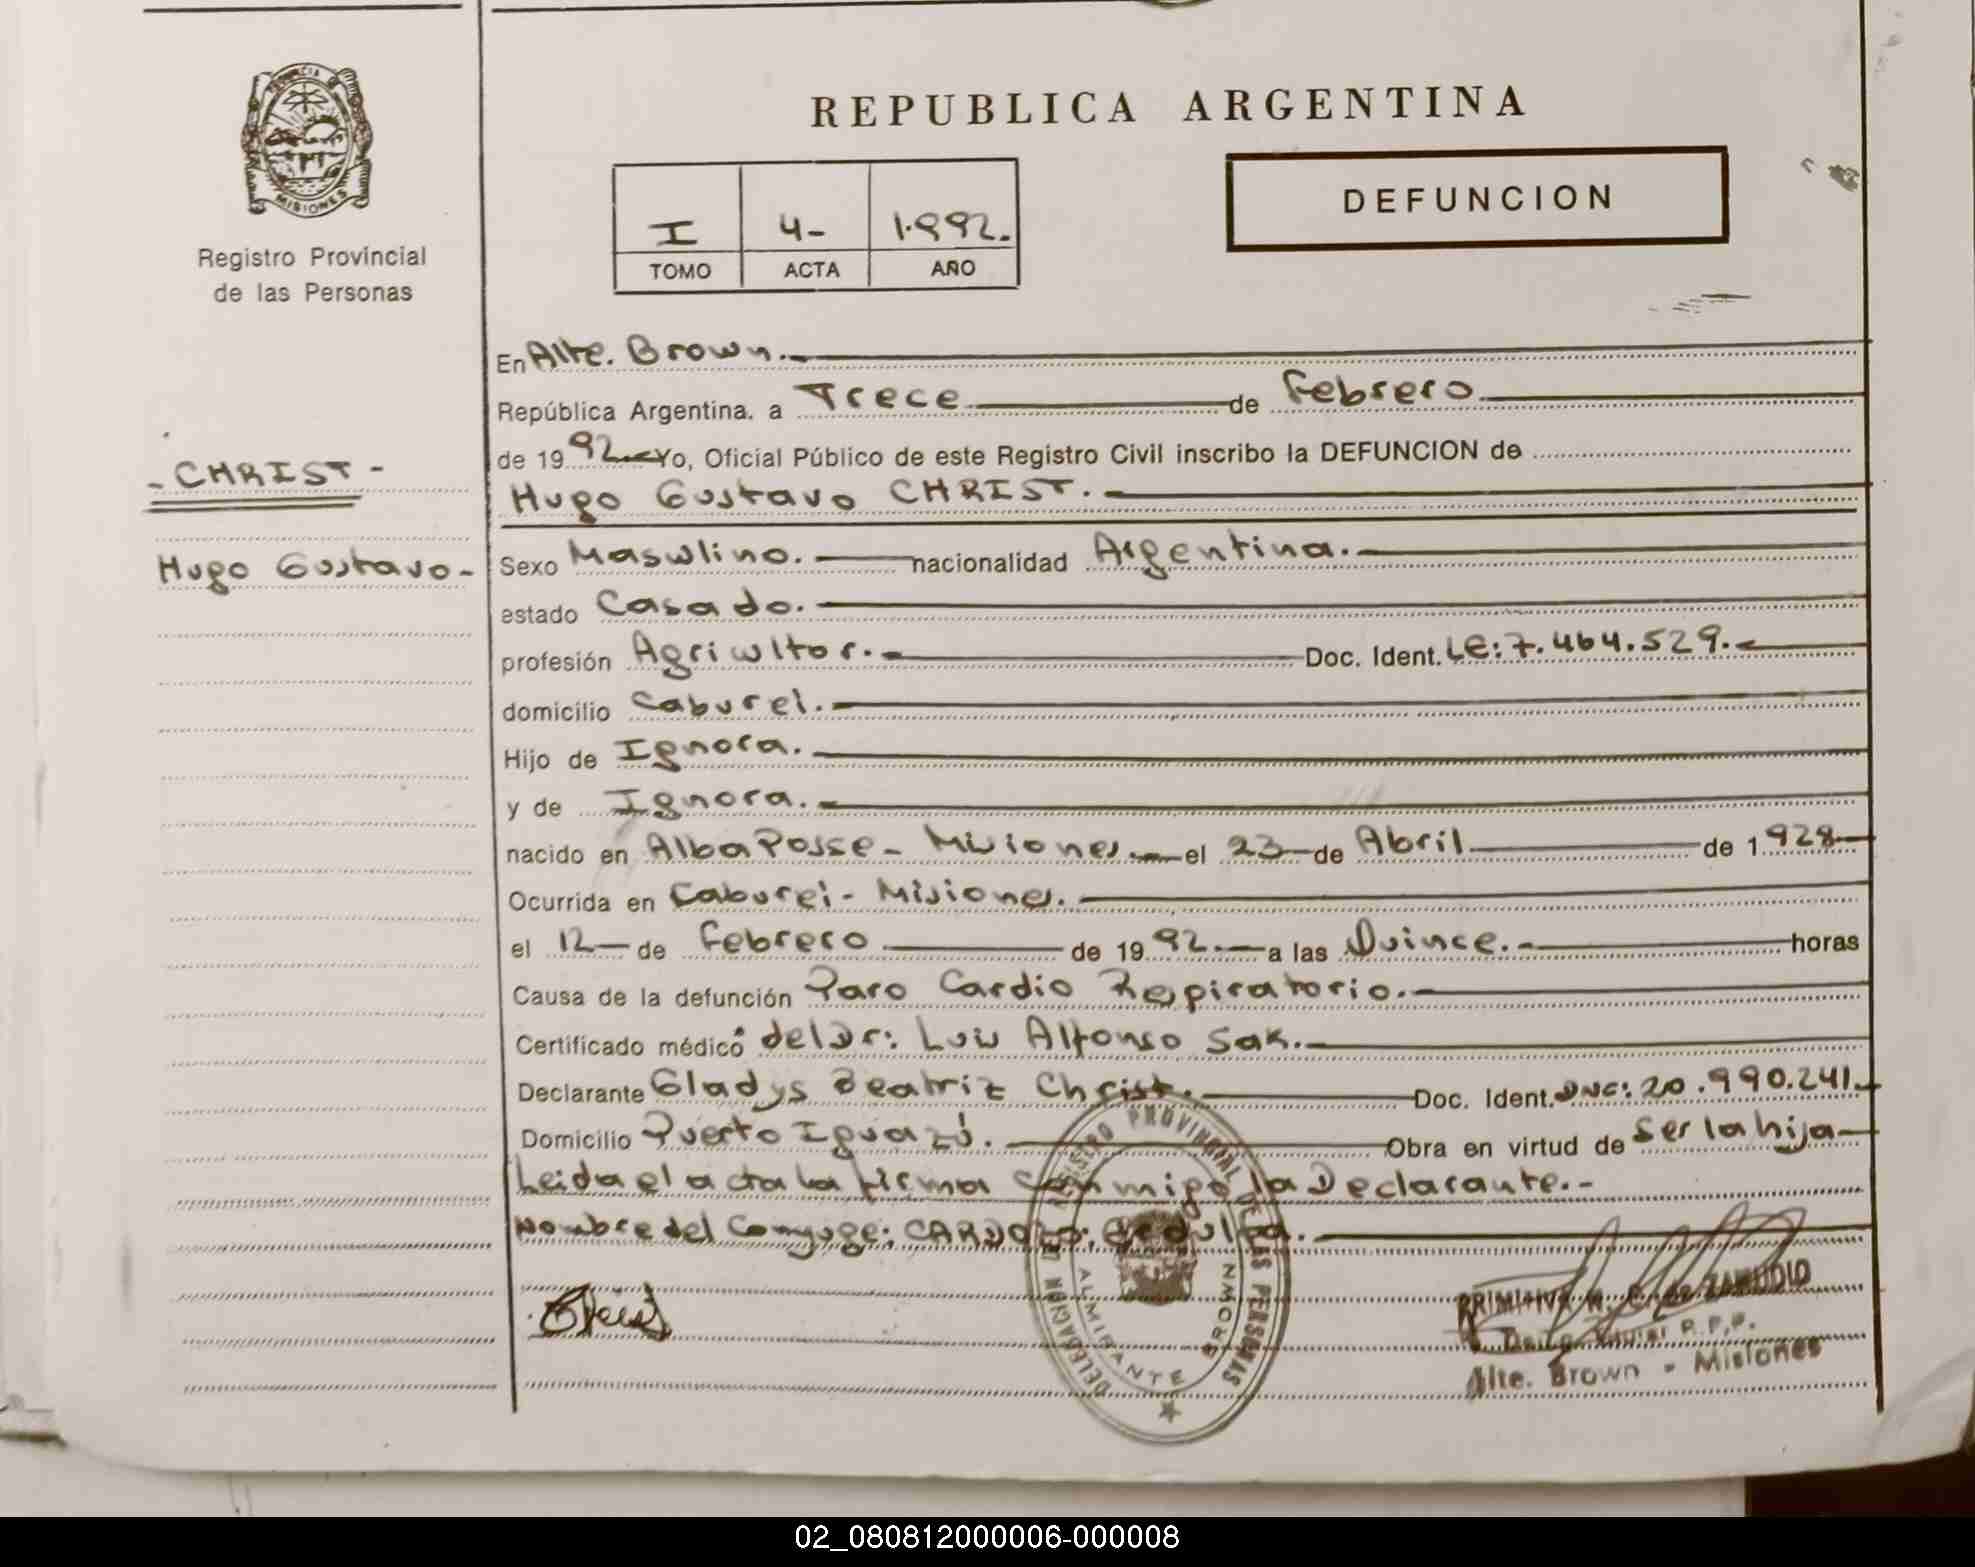 PROVINCIA DE
MISIONES
Registro Provincial
de las Personas
- CHRIST -
Hugo Gustavo -
REPUBLICA ARGENTINA
I 4- 1.992.
TOMO ACTA AÑO
DEFUNCION
En Alte. Brown.
República Argentina, a Trece de Febrero
de 1992. Yo, Oficial Público de este Registro Civil inscribo la DEFUNCION de
Hugo Gustavo CHRIST.
Sexo Masculino. nacionalidad Argentina.
estado Casado.
profesión Agricultor. Doc. Ident. LE: 7.464.529.
domicilio Caburei.
Hijo de Ignora.
y de Ignora.
nacido en Alba Posse - Misiones. el 23 de Abril de 1.928
Ocurrida en Caburei - Misiones.
el 12 de Febrero de 1992. a las Quince. horas
Causa de la defunción Paro Cardio Respiratorio.
Certificado médico del Dr: Luis Alfonso Sak.
Declarante Gladys Beatriz Christ. Doc. Ident. DNI: 20.990.241.
Domicilio Puerto Iguazú. Obra en virtud de Ser la hija
Leida el acta la firma conmigo la Declarante.-
Nombre del Conyuge: CARDOZO,
REGISTRO PROVINCIAL DE LAS PERSONAS
DELEGACION
ALMIRANTE BROWN
PRIMITIVA C. de ZAMUDIO
R.P.P.
Alte. Brown - Misiones
02_080812000006-000008